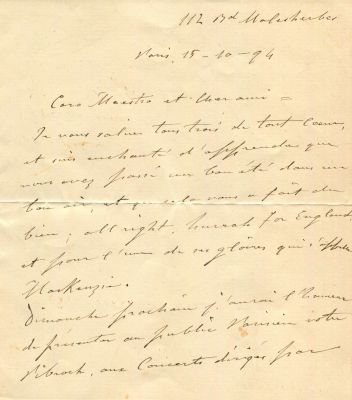 112 Bd Malesherbes
Paris, 15-10-94
Caro Maestro et Cher ami =
Je vous salue tous trois de tout Coeur,
et suis enchanté d'apprendre que
vous avez passé un bon été dans un
bon air, et que cela vous a fait du
bien; all right, hurrah for England,
et pour l'une de ses gloires qui
MacKenzie.
Dimanche prochain j'aurai l'honneur
de présenter au public Parisien votre
Pibroch, aux Concerts dirigés par